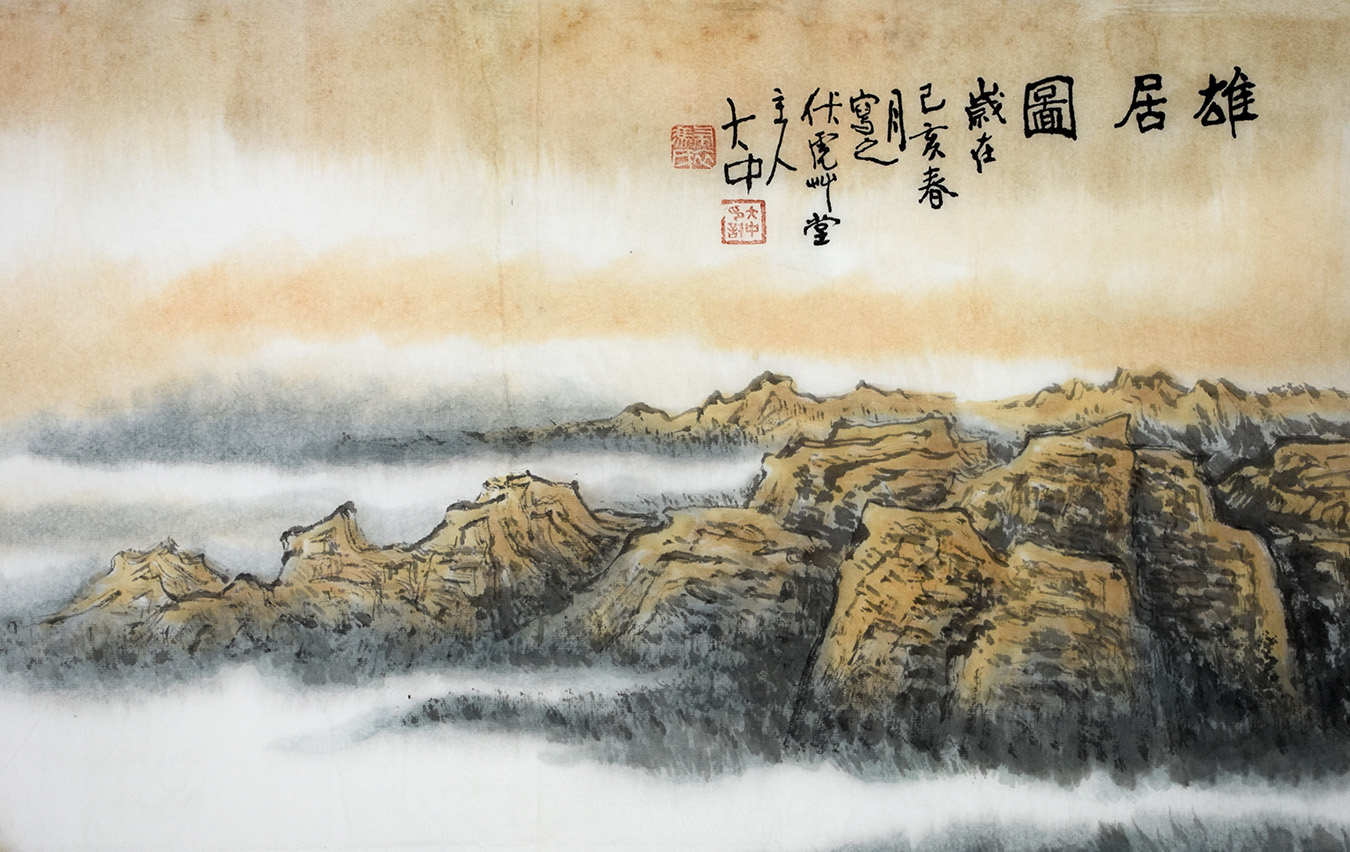 雄居圖
歲在
己亥春
月
寫之
伏虎艸堂
主人
大中